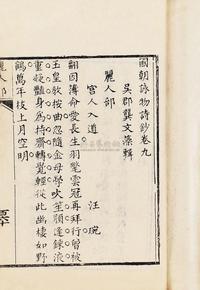 國朝詠物詩鈔卷九
吳郡龔文藻輯
麗人部
宮人入道
汪琬
翻因薄命愛長生羽氅雲冠再拜行曾被
玉皇教按曲忽隨金母學吹笙頻逢錄浪
重婭豔身為持齋轉覺輕從此幽棲如野
鶴萬年枝上月空明
麗人部